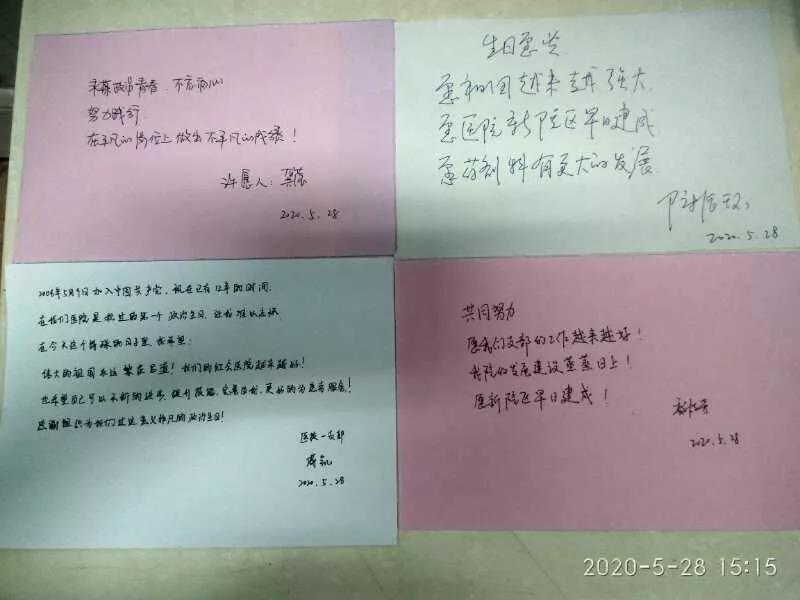 永葆政治青春 不忘初心
努力践行
在平凡的岗位上做出不平凡的成绩！
许愿人：
2020.5.28
生日愿望
愿祖国越来越强大
愿医院新院区早日建成
愿药剂科有更大的发展
2020.5.28
2008年5月9日加入中国共产党，现在已有12年的时间.
在我们医院是我过的第一个政治生日，让我难以忘怀.
在今天这个特殊的日子里，我希望：
伟大的祖国永远繁荣昌盛！我们的红会医院越来越好！
也希望自己可以不断的进步，提升技能，完善自我，更好的为患者服务！
感谢组织为我们过这意义非凡的政治生日！
医技一支部
2020.5.28
共同努力
愿我们支部的工作越来越好！
我院的发展建设蒸蒸日上！
愿新院区早日建成！
2020.5.28
2020-5-28 15:15